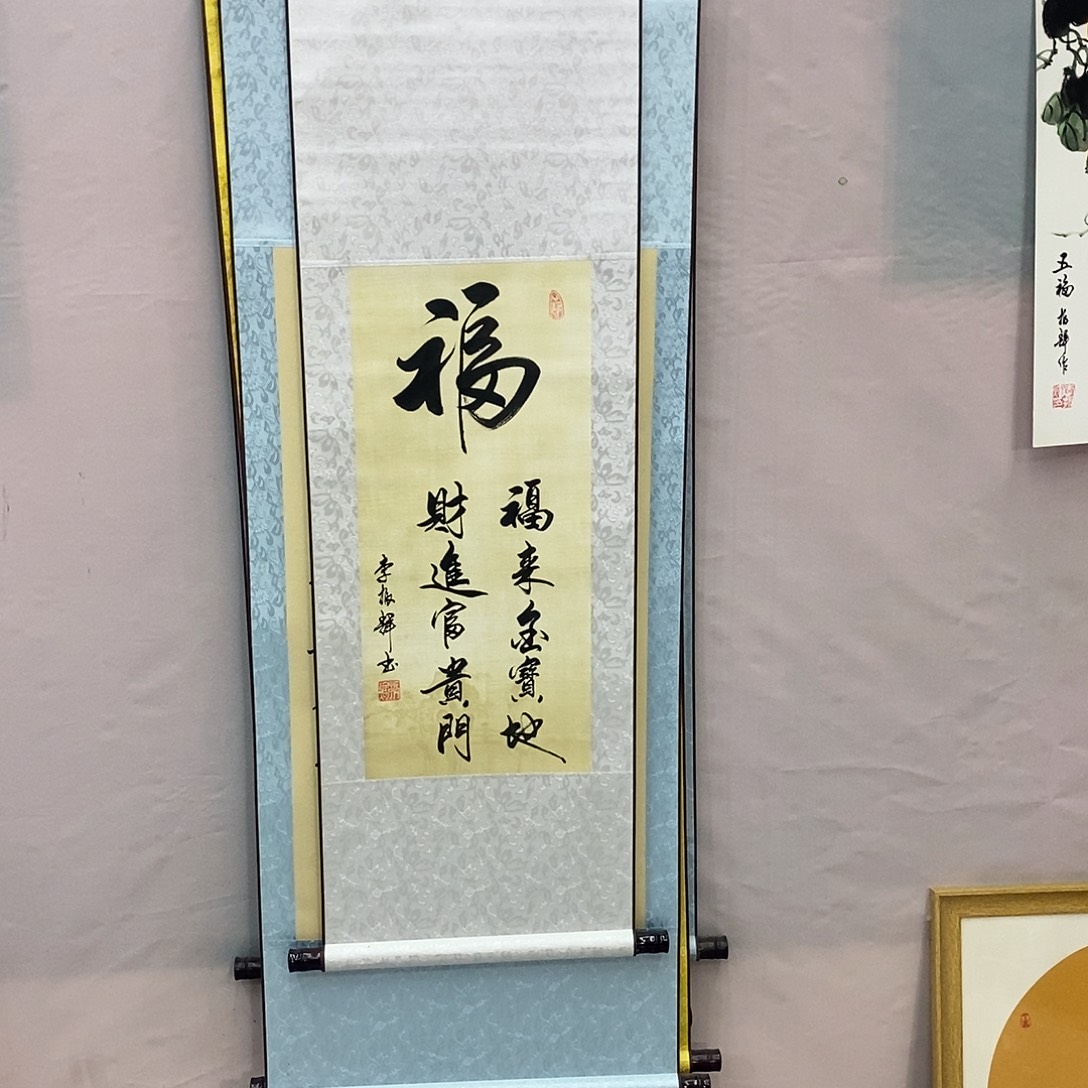 福
福来金寶地
財進富貴門
李振輝书
五福 振輝作